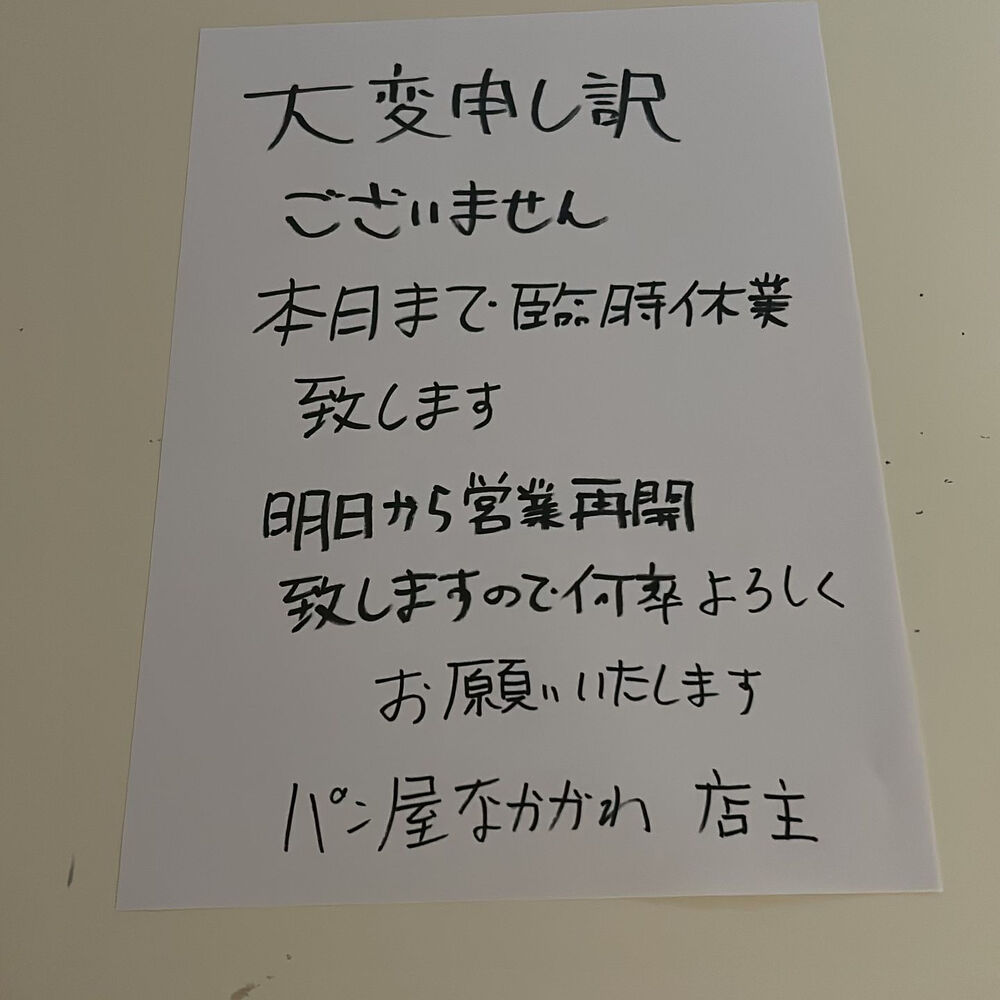 大変申し訳
ございません
本日まで臨時休業
致します
明日から営業再開
致しますので何卒よろしく
お願いいたします
パン屋なかがわ 店主